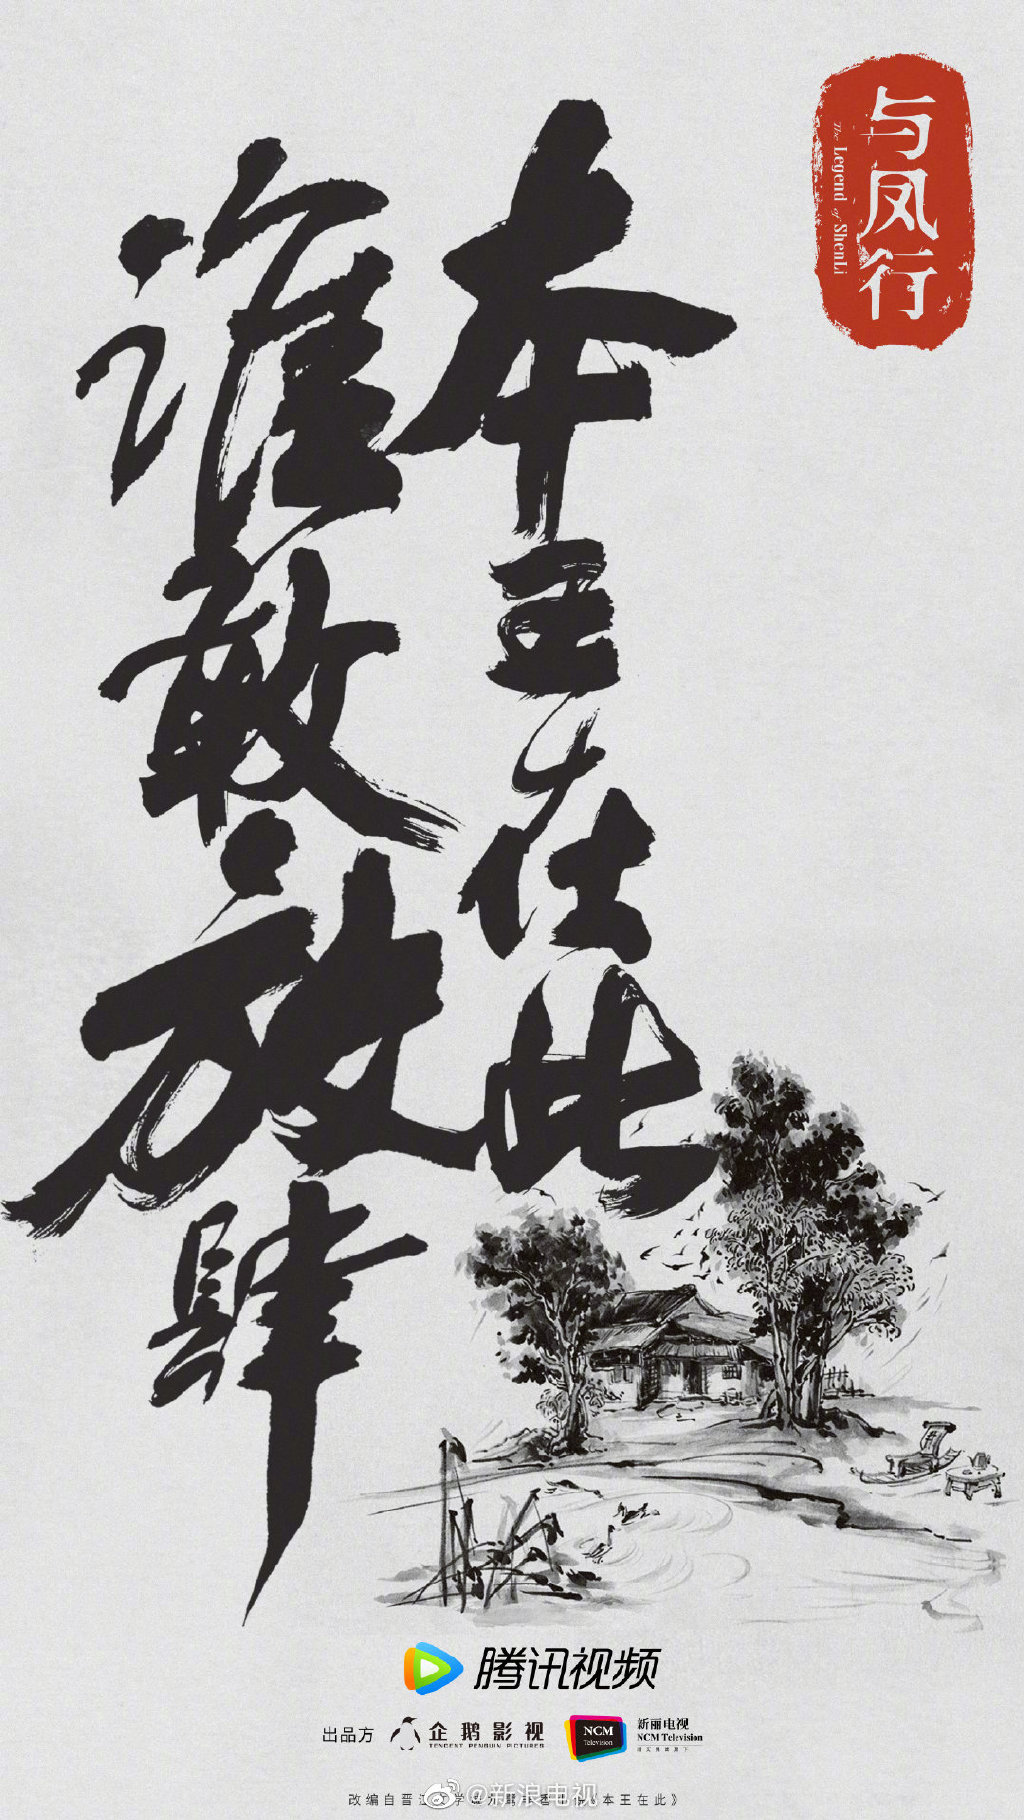 与凤行
The Legend of ShenLi
本王在此
谁敢放肆
腾讯视频
出品方
企鹅影视
TENCENT PENGUIN PICTURES
NCM
Television
新丽电视
NCM Television
@新浪电视
改编自晋江文学
《本王在此》